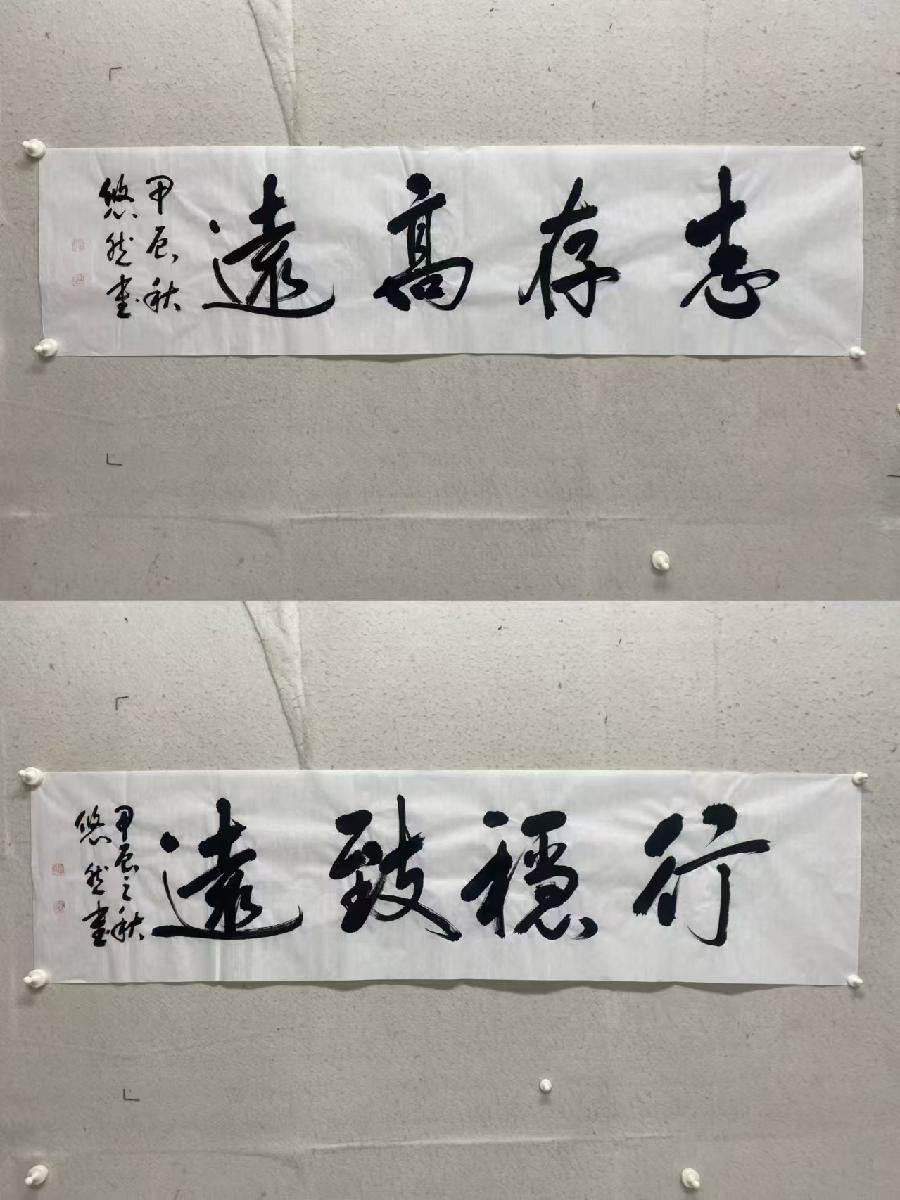 志存高遠
甲辰秋
悠然書
行穩致遠
甲辰之秋
悠然書